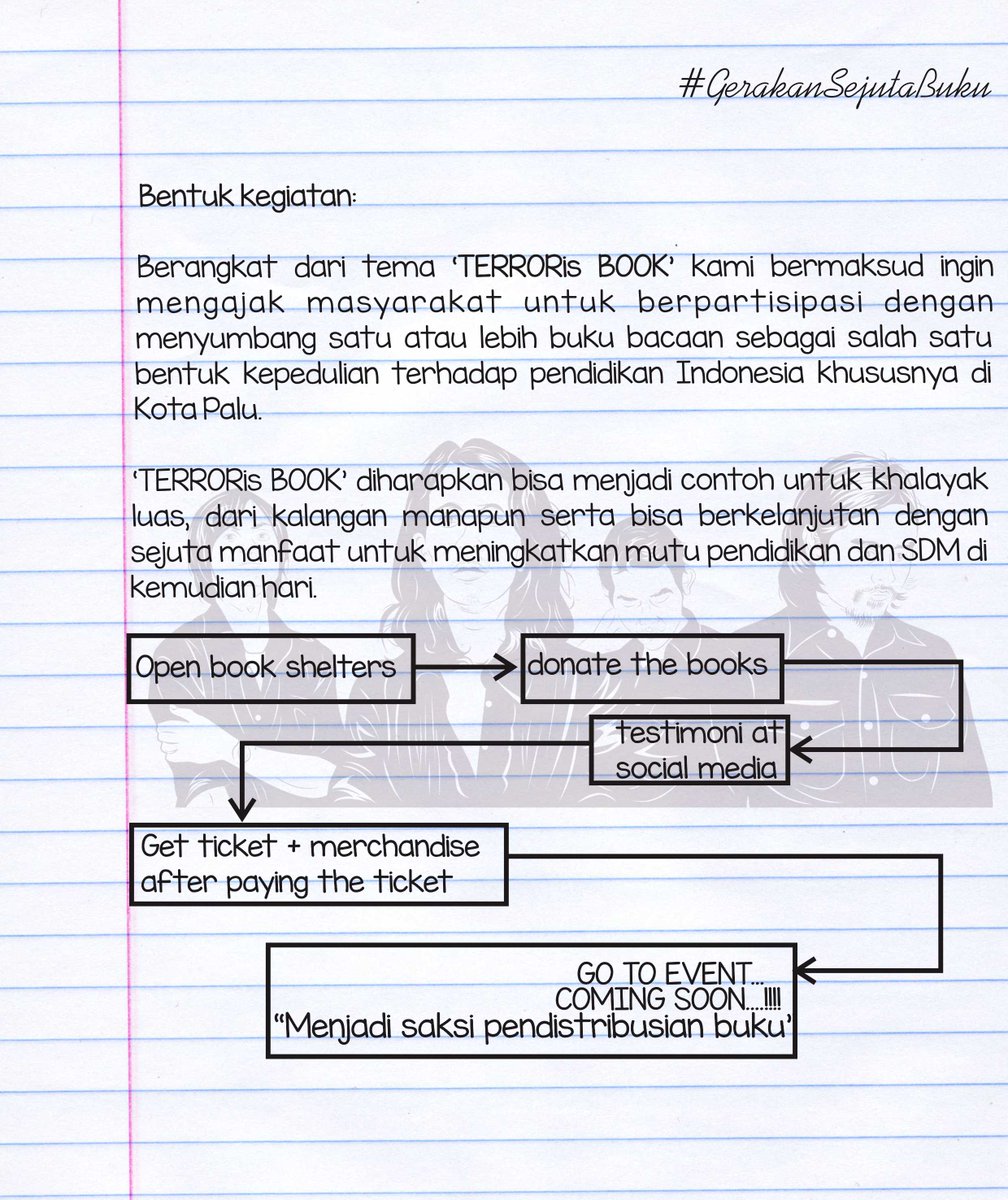 #GerakanSejutaBuku
Bentuk kegiatan:
Berangkat dari tema ‘TERRORis BOOK’ kami bermaksud ingin
mengajak masyarakat untuk berpartisipasi dengan
menyumbang satu atau lebih buku bacaan sebagai salah satu
bentuk kepedulian terhadap pendidikan Indonesia khususnya di
Kota Palu.
‘TERRORis BOOK’ diharapkan bisa menjadi contoh untuk khalayak
luas, dari kalangan manapun serta bisa berkelanjutan dengan
sejuta manfaat untuk meningkatkan mutu pendidikan dan SDM di
kemudian hari.
Open book shelters
donate the books
testimoni at
social media
Get ticket + merchandise
after paying the ticket
GO TO EVENT...
COMING SOON....!!!!
“Menjadi saksi pendistribusian buku’